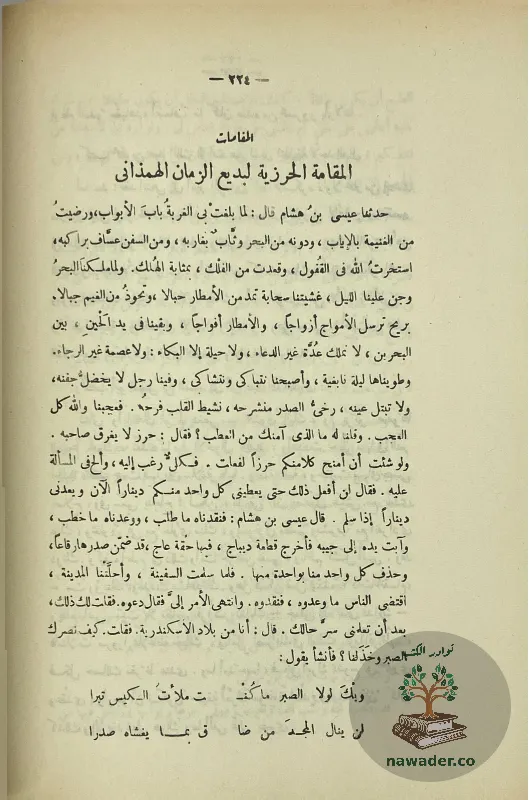 — ٢٢٤ —
المقامات
المقامة الحرزية لبديع الزمان الهمذانى
حدثنا عيسى بنُ هشام قال : لما بلغت بى الغربةُ بابَ الأبواب، ورضيتُ
من الغنيمة بالإياب ، ودونه من البحر وثَّابٌ بغاربه ، ومن السفن عسَّاف براكبه،
استخرتُ الله فى القُفول ، وقعدت من الفلك ، بمثابة الهُلك. ولما ملكنا البحرُ
وجن علينا الليل ، غشيتنا سحابة تمد من الأمطار حبالا ، وتحوذُ من الغيم جبالا.
بريح ترسل الأمواج أزواجاً ، والأمطار أفواجاً ، وبقينا فى يد الحْينِ ، بين
البحرين ، لا نملك عُدَّة غير الدعاء ، ولا حيلة إلا البكاء : ولا عصمة غير الرجاء.
وطويناها ليلة نابغية ، وأصبحنا نتباكى ونتشاكى ، وفينا رجل لا يخضل جفنه،
ولا تبتل عينه ، رخىُّ الصدر منشرحه ، نشيط القلب فرحهُ . فعجبنا والله كل
العجب . وقلنا له ما الذى آمنك من العطب ؟ فقال : حرز لا يغرق صاحبه .
ولو شئت أن أمنح كلا منكم حرزاً لفعلت . فكلٌّ رغب إليه، وألح فى المسألة
عليه . فقال لن أفعل ذلك حتى يعطينى كل واحد منكم ديناراً الآن ويعدنى
ديناراً إذا سلم . قال عيسى بن هشام : فنقدناه ما طلب ، ووعدناه ما خطب ،
وآبت يده إلى جيبه فأخرج قطعة ديباج ، فيها حُقة عاج ، قد ضمّن صدرها رقاعاً،
وحذف كل واحد منا بواحدة منها . فلما سلمت السفينة ، وأحلَّتْنا المدينة ،
اقتضى الناس ما وعدوه ، فنقدوه. وانتهى الأمر إلىَّ فقال دعوه. فقلت لك ذلك،
بعد أن تعلمنى سرَّ حالك . قال : أنا من بلاد الأسكندرية. فقلت. كيف نصرك
الصبر وخَذَلَنا ؟ فأنشأ يقول :
ويك لولا الصبر ما كُنْت ملأتُ الكيس تبرا
لن ينال المجدَ من ضاق بما يغشاه صدرا
نوادر الكتب
nawader.co